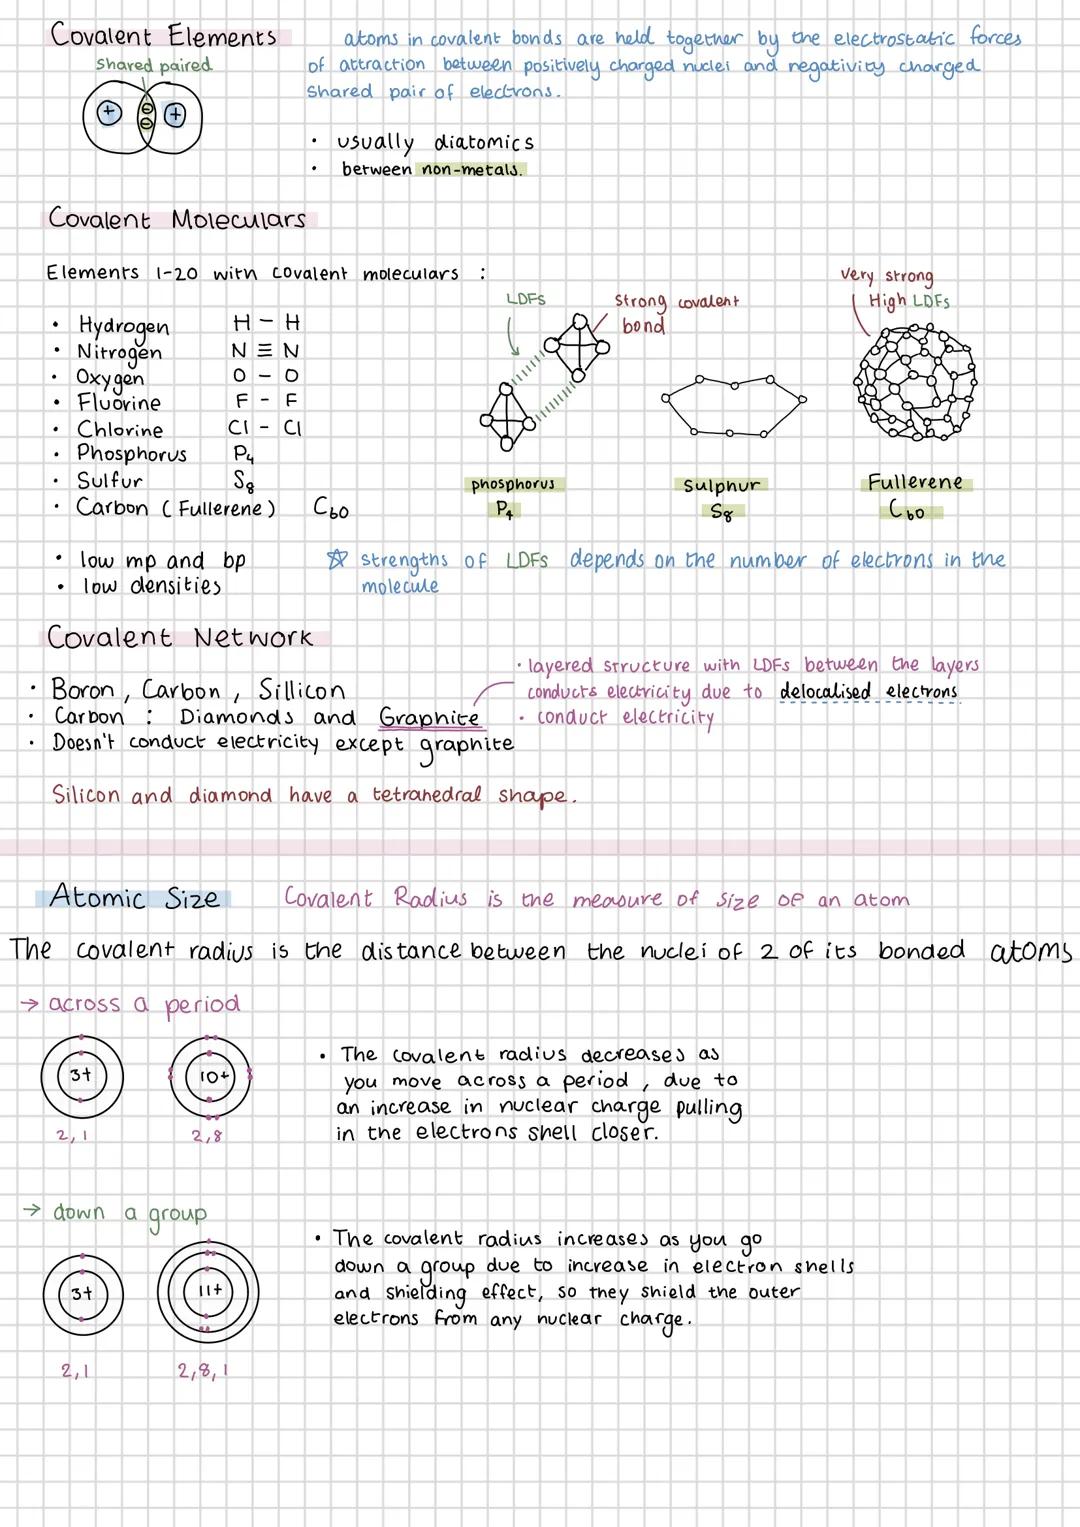 Covalent Elements
shared paired
+ - - +
atoms in covalent bonds are held together by the electrostatic forces
of attraction between positively charged nuclei and negativity charged
shared pair of electrons.
• usually diatomics
• between non-metals.
Covalent Moleculars
Elements 1-20 with covalent moleculars :
• Hydrogen H - H
• Nitrogen N ≡ N
• Oxygen O - O
• Fluorine F - F
• Chlorine Cl - Cl
• Phosphorus P4
• Sulfur S8
• Carbon (Fullerene) C60
LDFs
strong covalent
bond
very strong
High LDFs
phosphorus
P4
Sulphur
S8
Fullerene
C60
• low mp and bp
• low densities
☆ strengths of LDFs depends on the number of electrons in the
molecule
Covalent Network
• Boron, Carbon, Sillicon
• Carbon : Diamonds and Graphite
• Doesn't conduct electricity except graphite
• layered structure with LDFs between the layers
conducts electricity due to delocalised electrons
• conduct electricity
Silicon and diamond have a tetrahedral shape.
Atomic Size
Covalent Radius is the measure of size of an atom
The covalent radius is the distance between the nuclei of 2 of its bonded atoms
→ across a period
3+ 10+
2,1 2,8
• The covalent radius decreases as
you move across a period, due to
an increase in nuclear charge pulling
in the electrons shell closer.
→ down a group
3+ 11+
2,1 2,8,1
• The covalent radius increases as you go
down a group due to increase in electron shells
and shielding effect, so they shield the outer
electrons from any nuclear charge.